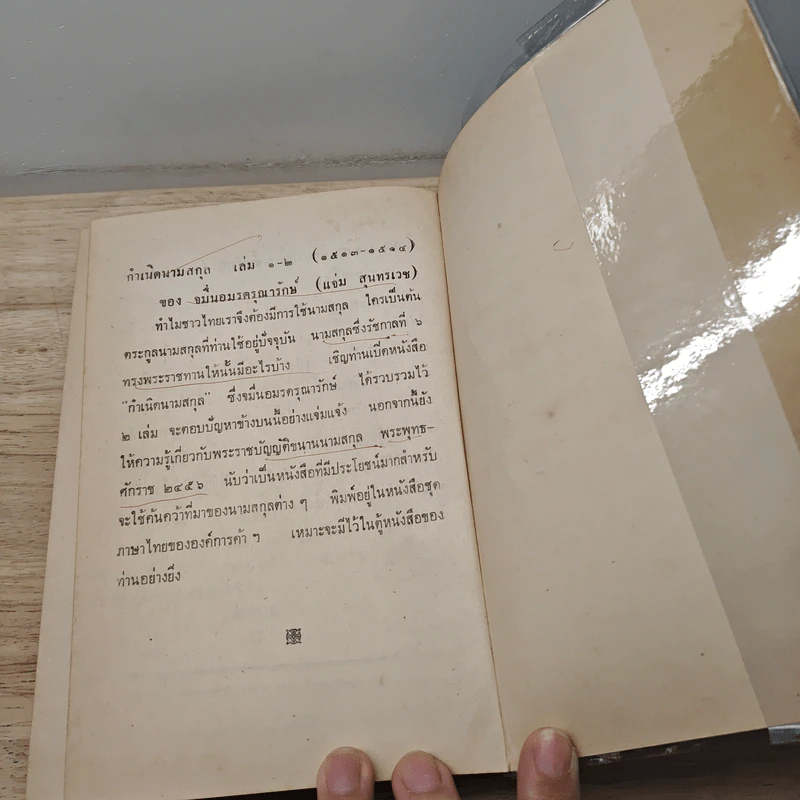 กำเนิดนามสกุล เล่ม ๑-๒ (๑๕๑๓-๑๕๑๔)
ของ จมื่นอมรดรุณารักษ์ (แจ่ม สุนทรเวช)
ทำไมชาวไทยเราจึงต้องมีการใช้นามสกุล ใครเป็นต้น
ตระกูลนามสกุลที่ท่านใช้อยู่ปัจจุบัน นามสกุลซึ่งรัชกาลที่ ๖
ทรงพระราชทานให้นั้นมีอะไรบ้าง เชิญท่านเปิดหนังสือ
"กำเนิดนามสกุล" ซึ่งจมื่นอมรดรุณารักษ์ ได้รวบรวมไว้
๒ เล่ม จะตอบปัญหาข้างบนนี้อย่างแจ่มแจ้ง นอกจากนี้ยัง
ให้ความรู้เกี่ยวกับพระราชบัญญัติขนานนามสกุล พระพุทธ-
ศักราช ๒๔๕๖ นับว่าเป็นหนังสือที่มีประโยชน์มากสำหรับ
จะใช้ค้นคว้าที่มาของนามสกุลต่าง ๆ พิมพ์อยู่ในหนังสือชุด
ภาษาไทยขององค์การค้า ฯ เหมาะจะมีไว้ในตู้หนังสือของ
ท่านอย่างยิ่ง